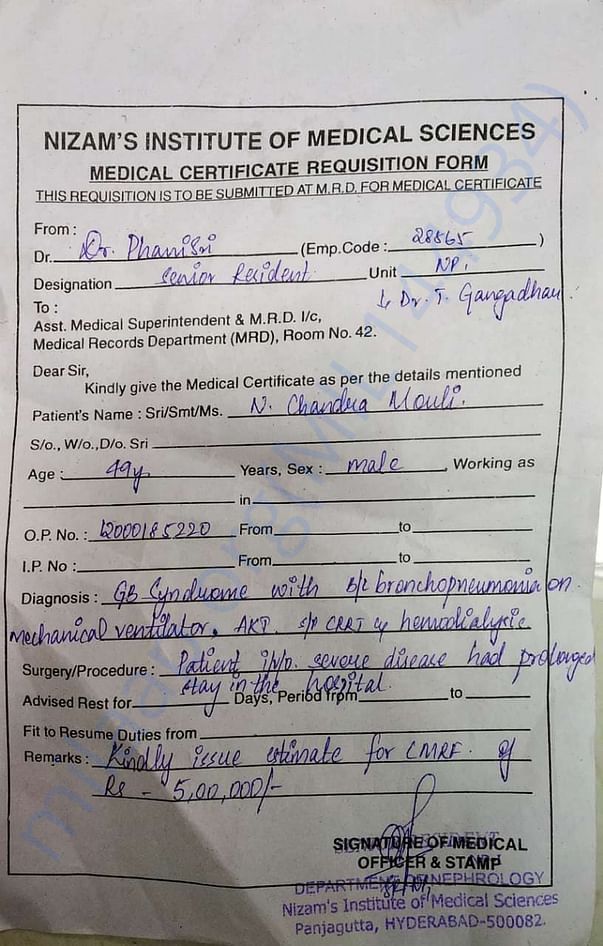 NIZAM'S INSTITUTE OF MEDICAL SCIENCES
MEDICAL CERTIFICATE REQUISITION FORM
THIS REQUISITION IS TO BE SUBMITTED AT M.R.D. FOR MEDICAL CERTIFICATE
From :
Dr. Dr. PhaniSri (Emp.Code : 28565 )
Designation Senior Resident Unit NP1
To : Dr. T. Gangadhar
Asst. Medical Superintendent & M.R.D. I/c,
Medical Records Department (MRD), Room No. 42.
Dear Sir,
Kindly give the Medical Certificate as per the details mentioned
Patient's Name : Sri/Smt/Ms. N. Chandra Mouli.
S/o., W/o.,D/o. Sri
Age : 49y. Years, Sex : male , Working as
in
O.P. No. : 12000185220 From to
I.P. No : From to
Diagnosis : GB Syndrome with B/L bronchopneumonia on
mechanical ventilator, AKI. S/P CRRT & hemodialysis
Surgery/Procedure : Patient i/v/o. severe disease had prolonged
stay in the hospital.
Advised Rest for Days, Period from to
Fit to Resume Duties from
Remarks : Kindly issue estimate for CMRF of
Rs - 5,00,000/-
SIGNATURE OF MEDICAL
OFFICER & STAMP
DEPARTMENT OF NEPHROLOGY
Nizam's Institute of Medical Sciences
Panjagutta, HYDERABAD-500082.